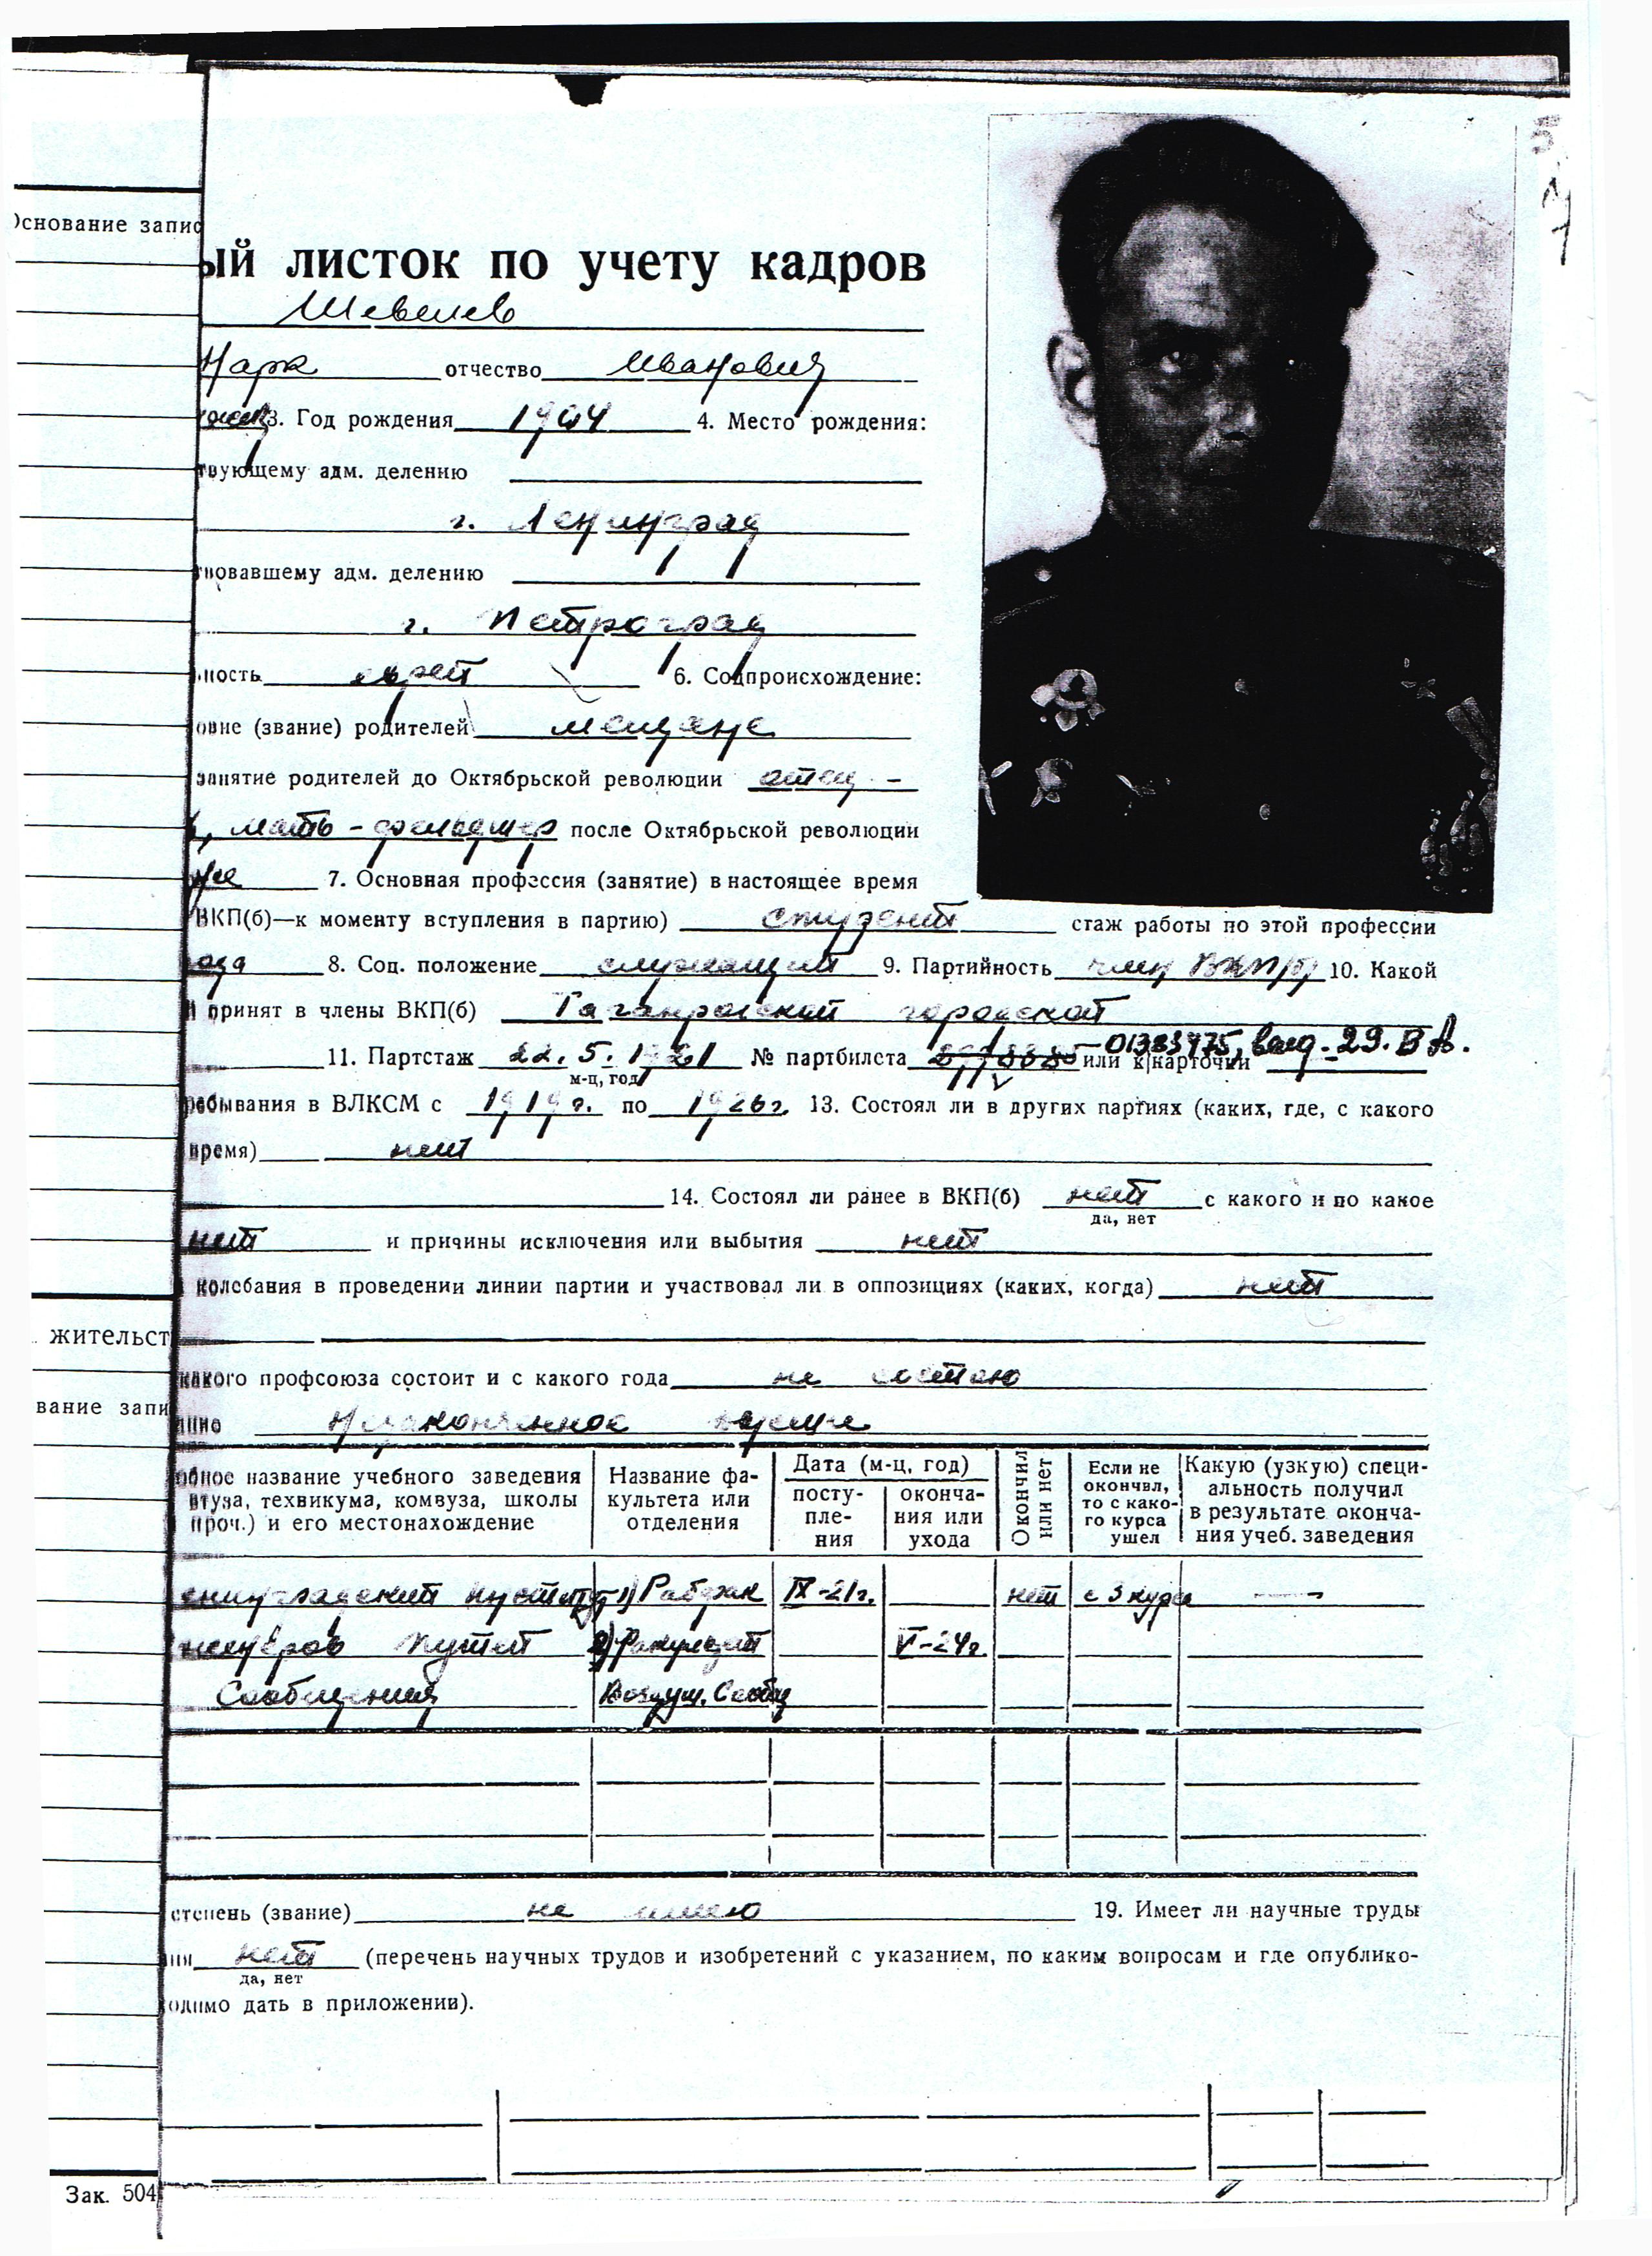 Основание запис
ый листок по учету кадров
Шевелев
Марк отчество Иванович
3. Год рождения 1904 4. Место рождения:
твующему адм. делению
г. Ленинград
повавшему адм. делению
г. Петроград
ность еврей 6. Соцпроисхождение:
овие (звание) родителей мещане
занятие родителей до Октябрьской революции отец -
, мать - фельдшер после Октябрьской революции
же 7. Основная профессия (занятие) в настоящее время
ВКП(б)—к моменту вступления в партию) студент стаж работы по этой профессии
года 8. Соц. положение служащий 9. Партийность член ВКП(б) 10. Какой
принят в члены ВКП(б) Таганрогской городской
11. Партстаж 22. 5. 1921 № партбилета 01383475, выд. 29. или к/карточки
м-ц, год
ребывания в ВЛКСМ с 1919 г. по 1926 г. 13. Состоял ли в других партиях (каких, где, с какого
время) нет
14. Состоял ли ранее в ВКП(б) нет с какого и по какое
да, нет
нет и причины исключения или выбытия нет
колебания в проведении линии партии и участвовал ли в оппозициях (каких, когда) нет
жительст
какого профсоюза состоит и с какого года не состою
вание запи
Незаконченное высшее
обное название учебного заведения Название фа- Дата (м-ц, год) Окончил или нет Если не Какую (узкую) специ-
втуза, техникума, комвуза, школы культета или посту- оконча- окончил, альность получил
проч.) и его местонахождение отделения пле- ния или то с како- в результате оконча-
ния ухода го курса ния учеб. заведения
ушел
енинградский Институт 1) Рабфак IX-21г. нет с 3 курса
женеров Путей 2) Факультет V-24г.
Сообщения Воздуш. Сообщ
степень (звание) не имею 19. Имеет ли научные труды
нет (перечень научных трудов и изобретений с указанием, по каким вопросам и где опублико-
да, нет
одимо дать в приложении).
Зак. 504